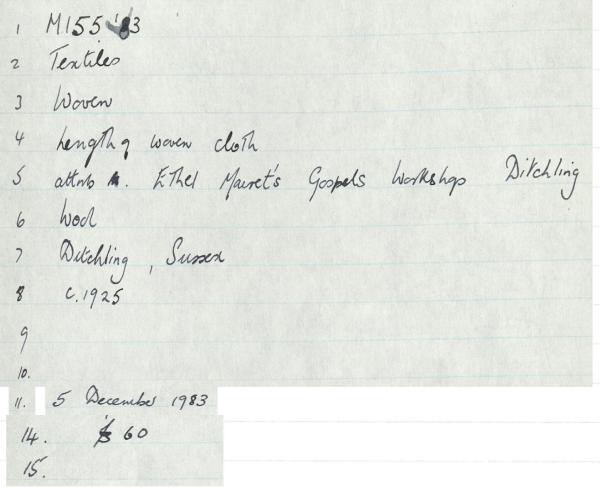 1 M155 '83
2 Textiles
3 Woven
4 Length of woven cloth
5 attrib to. Ethel Mairet's Gospels Workshop Ditchling
6 Wool
7 Ditchling, Sussex
8 c.1925
9
10.
11. 5 December 1983
14. £60
15.